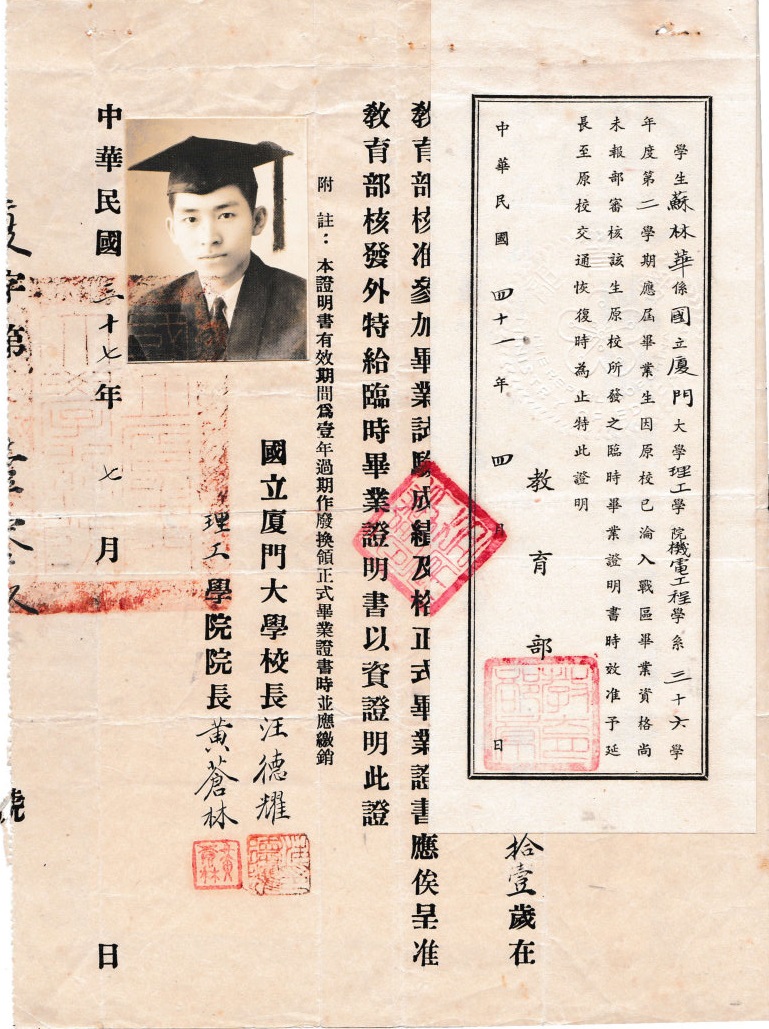 學生蘇林華係國立廈門大學理工學院機電工程學系三十六學
年度第二學期應屆畢業生因原校已淪入戰區畢業資格尚
未報部審核該生原校所發之臨時畢業證明書時效准予延
長至原校交通恢復時為止特此證明
教育部
中華民國四十一年四月 日
拾壹歲在
教育部核准參加畢業試驗成績及格正式畢業證書應俟呈准
教育部核發外特給臨時畢業證明書以資證明此證
附註：本證明書有效期間爲壹年過期作廢換領正式畢業證書時並應繳銷
國立厦門大學校長汪德耀
理工學院院長黃蒼林
中華民國三十七年七月 日
字第 號